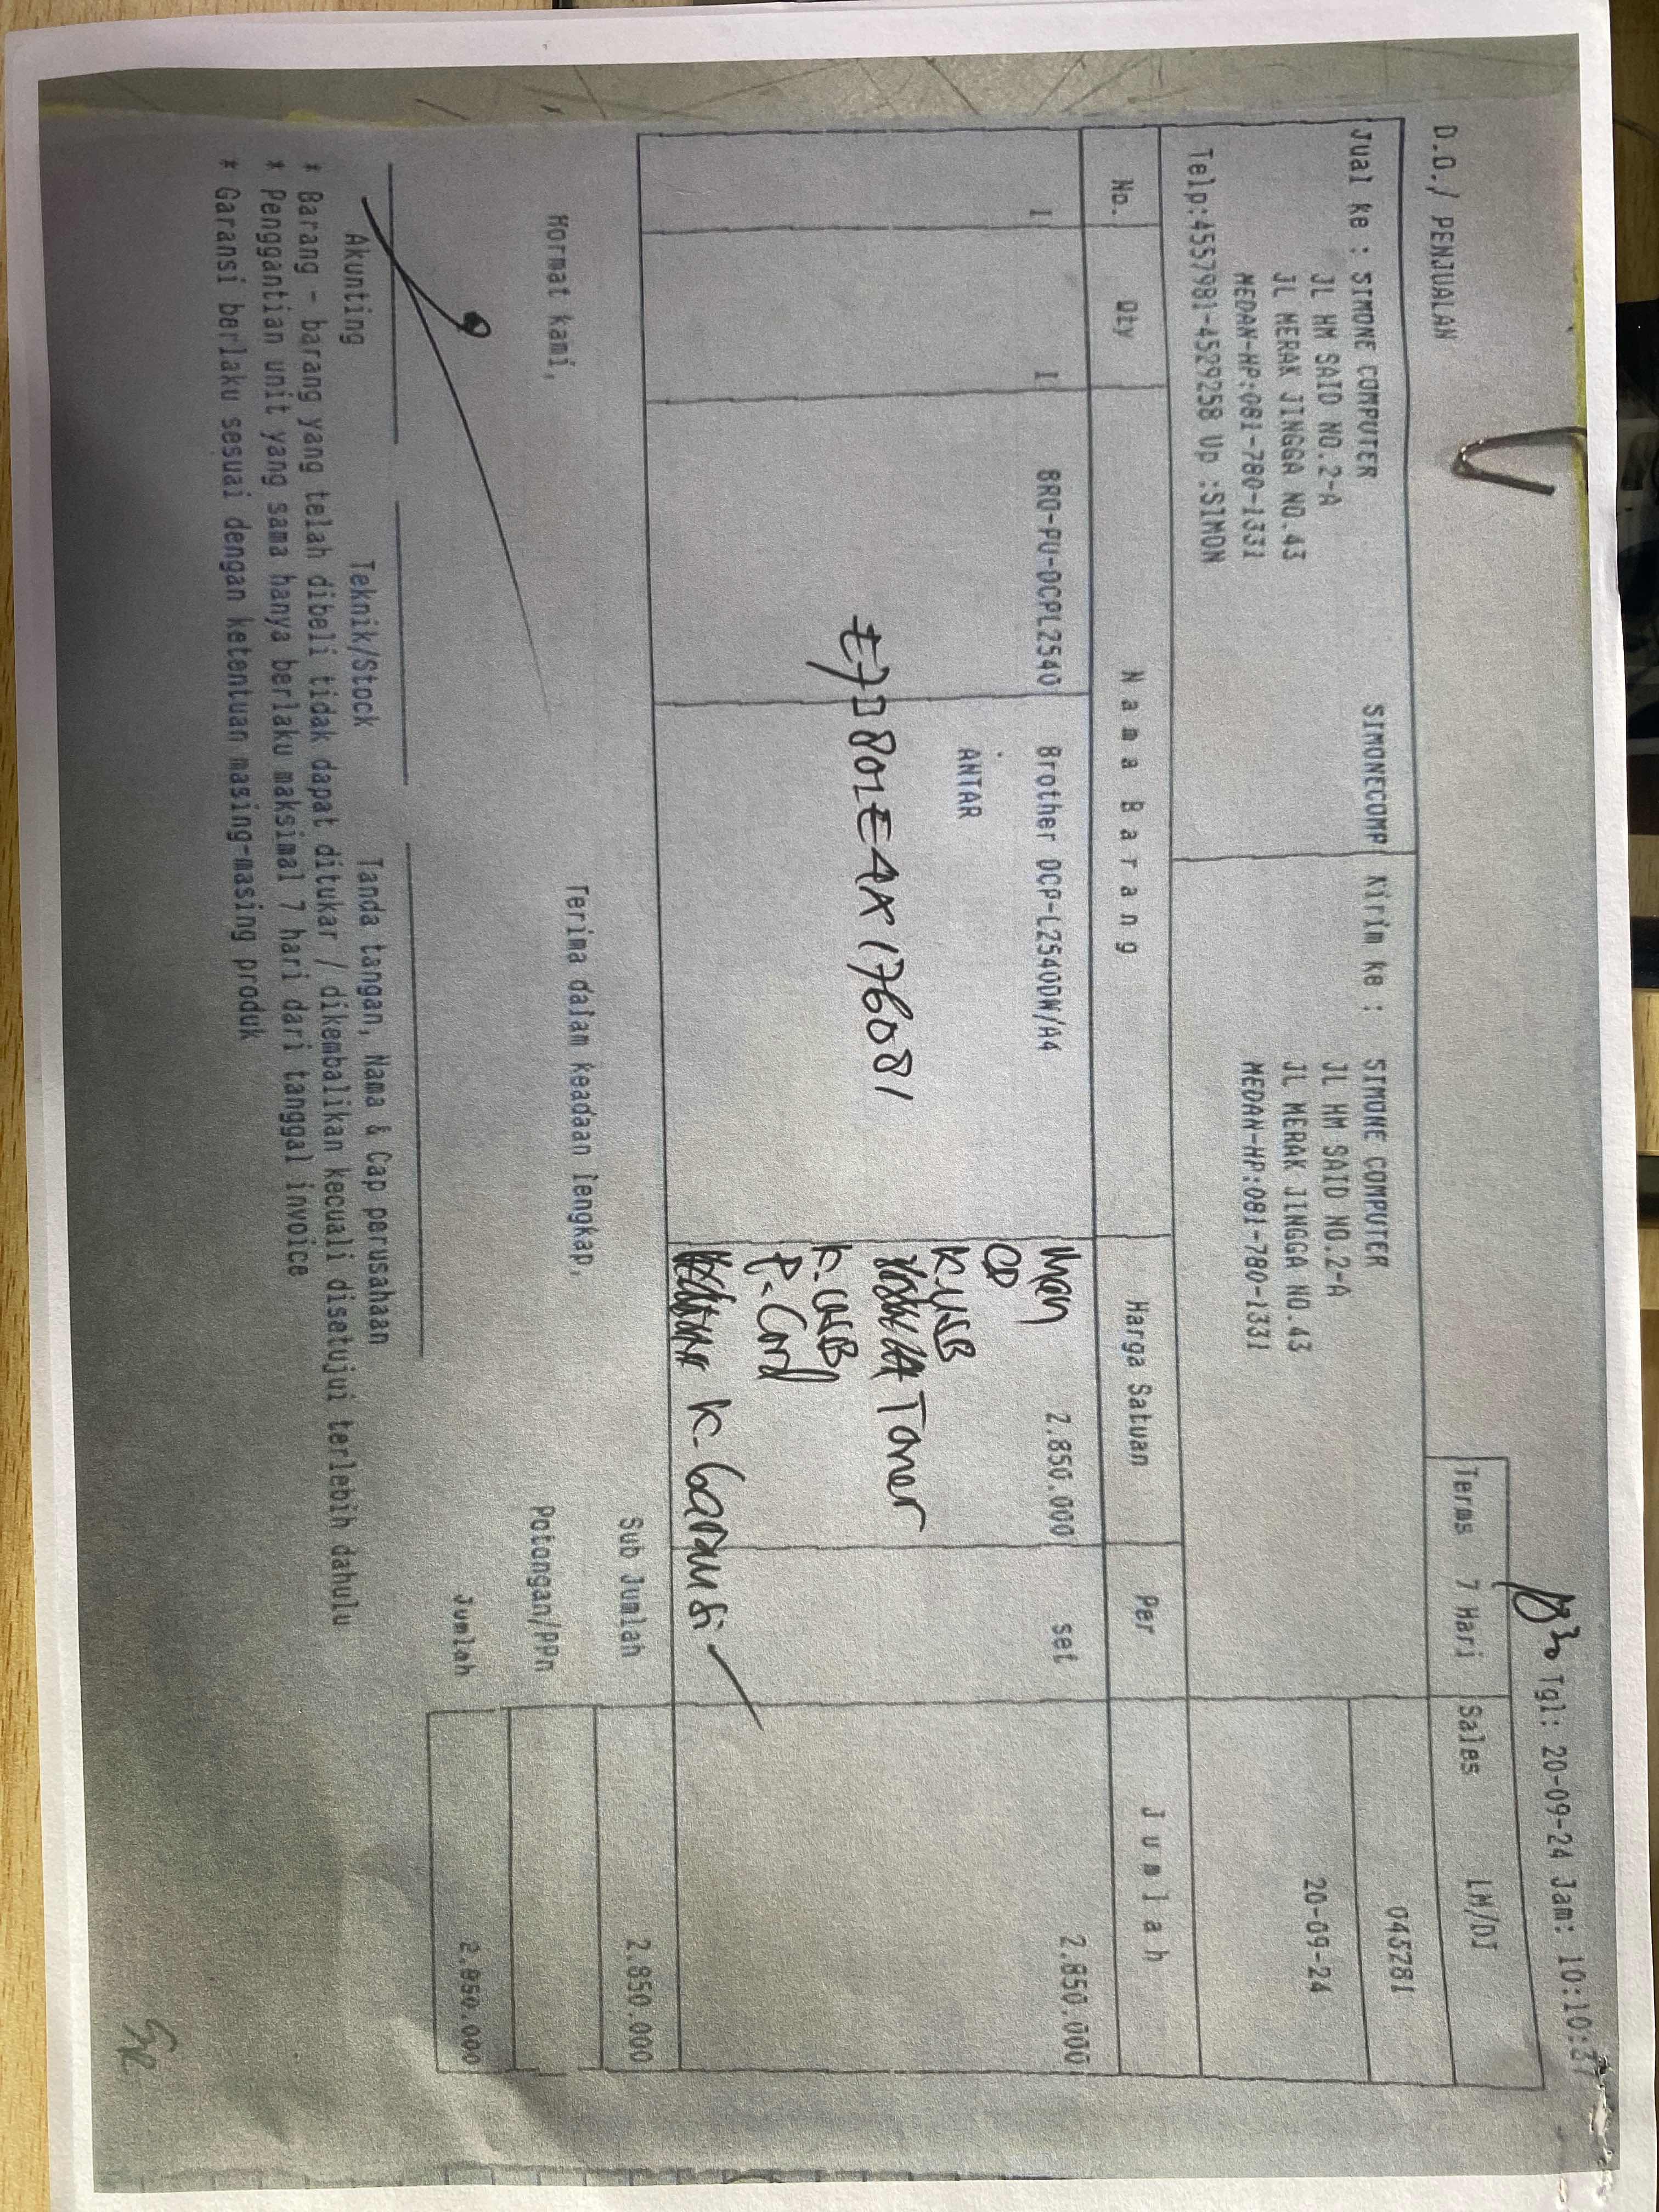 Tgl: 20-09-24 Jam: 10:10:37
D.O./ PENJUALAN
Terms 7 Hari Sales LM/DI
Jual ke : SIMONE COMPUTER SIMONECOMP Kirim ke : SIMONE COMPUTER 045281
JL HM SAID NO.2-A JL HM SAID NO.2-A
JL MERAK JINGGA NO.43 JL MERAK JINGGA NO.43 20-09-24
MEDAN-HP:081-780-1331 MEDAN-HP:081-780-1331
Telp:4557981-4529258 Up :SIMON
No. Qty Nama Barang Harga Satuan Per Jumlah
1 1 BRO-PU-DCPL2540 Brother DCP-L2540DW/A4 2.850.000 set 2.850.000
Man
CD
ANTAR
K. USB
Toner
K. USB
P. Cord
K. Garansi
Sub Jumlah 2.850.000
Hormat kami, Terima dalam keadaan lengkap,
Potongan/PPn
Jumlah 2.850.000
Akunting Teknik/Stock Tanda tangan, Nama & Cap perusahaan
* Barang - barang yang telah dibeli tidak dapat ditukar / dikembalikan kecuali disetujui terlebih dahulu
* Penggantian unit yang sama hanya berlaku maksimal 7 hari dari tanggal invoice
* Garansi berlaku sesuai dengan ketentuan masing-masing produk